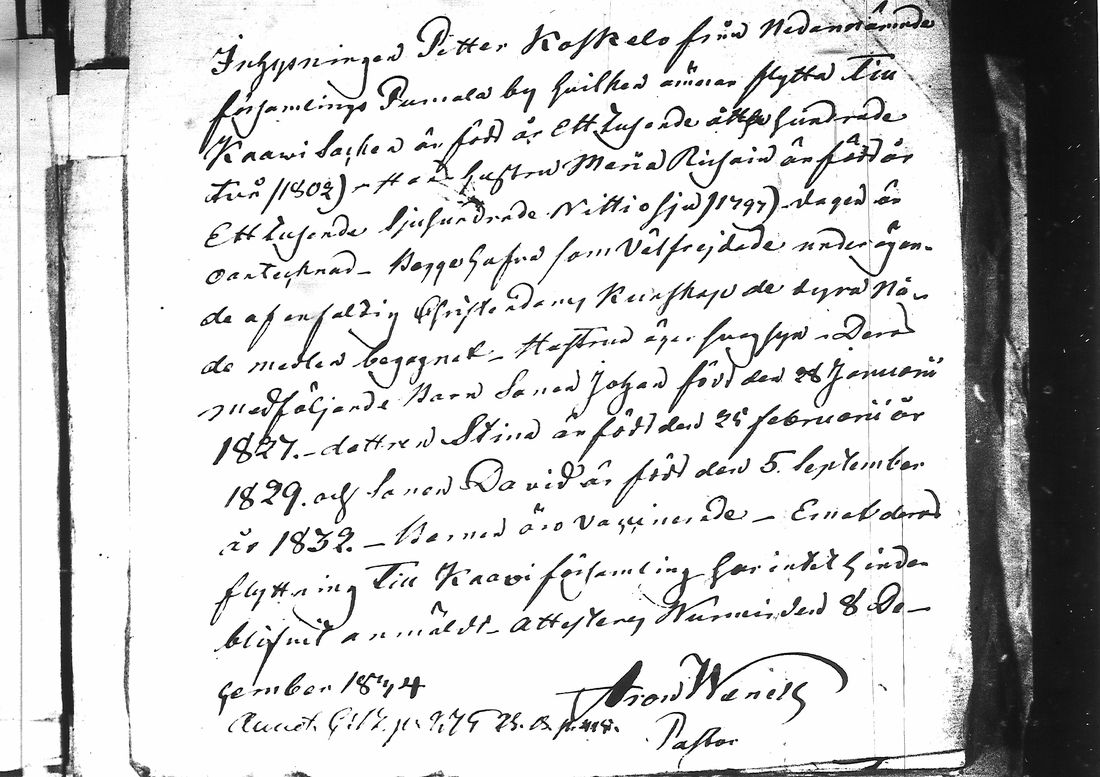 Inhysningen Petter Koskelo från Nedannämnde
församlings Pumala by hvilken ämnar flytta Till
Kaavi Socken är född år Ett Tusende åtta hundrade
två (1802) Hustru Maria Risain är född år
Ett Tusende Sjuhundrade Nittiosju (1797) dagen är
oantecknad _ Begge hafva som Välfrejdade under ägan-
de af enfaldig Christendoms Kunskap de dyra Nå-
de medlen begagnat _ Hustrun äger svag syn _ Deras
medföljande Barn Sonen Johan född den 28 Januarii
1827. _ dottren Stina är född den 25 Februarii år
1829. och Sonen David är född den 5. September
år 1832. _ Barnen äro Vaccinerade _ Emot deras
flyttning Till Kaavi församling har intet hinder
blifvit anmäldt _ Attesteras Nurmis den 8 De-
cember 1844
Aron
Pastor